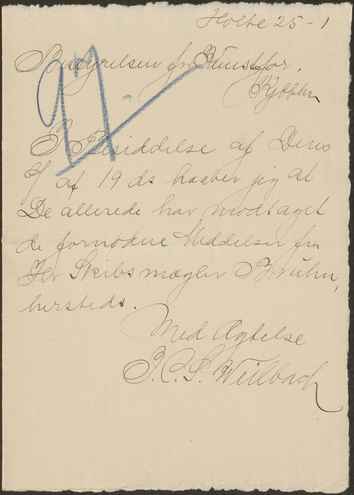 Holte 25-1
Bestyrelsen for Kunstfor.
Kjøbhn
I Besiddelse af Deres
af 19 ds haaber jeg at
De allerede har modtaget
de fornødne Meddelelser fra
Her Skibsmægler Bruhn,
hersteds.
Med Agtelse
P. C. S. Weilbach
97